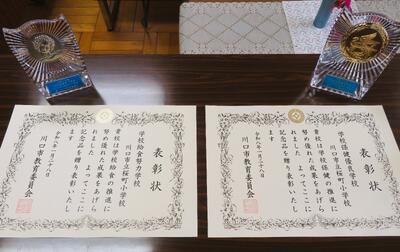 表彰状
学校給食努力学校
川口市立桜町小学校
貴校は学校給食の推進に
努め優れた成果をあげら
れました よってここに
記念品を贈り表彰いたし
ます
川口市教育委員会
表彰状
学校保健優良学校
川口市立桜町小学校
貴校は学校保健の推進に
努め優れた成果をあげら
れました よってここに
記念品を贈り表彰いたし
ます
川口市教育委員会